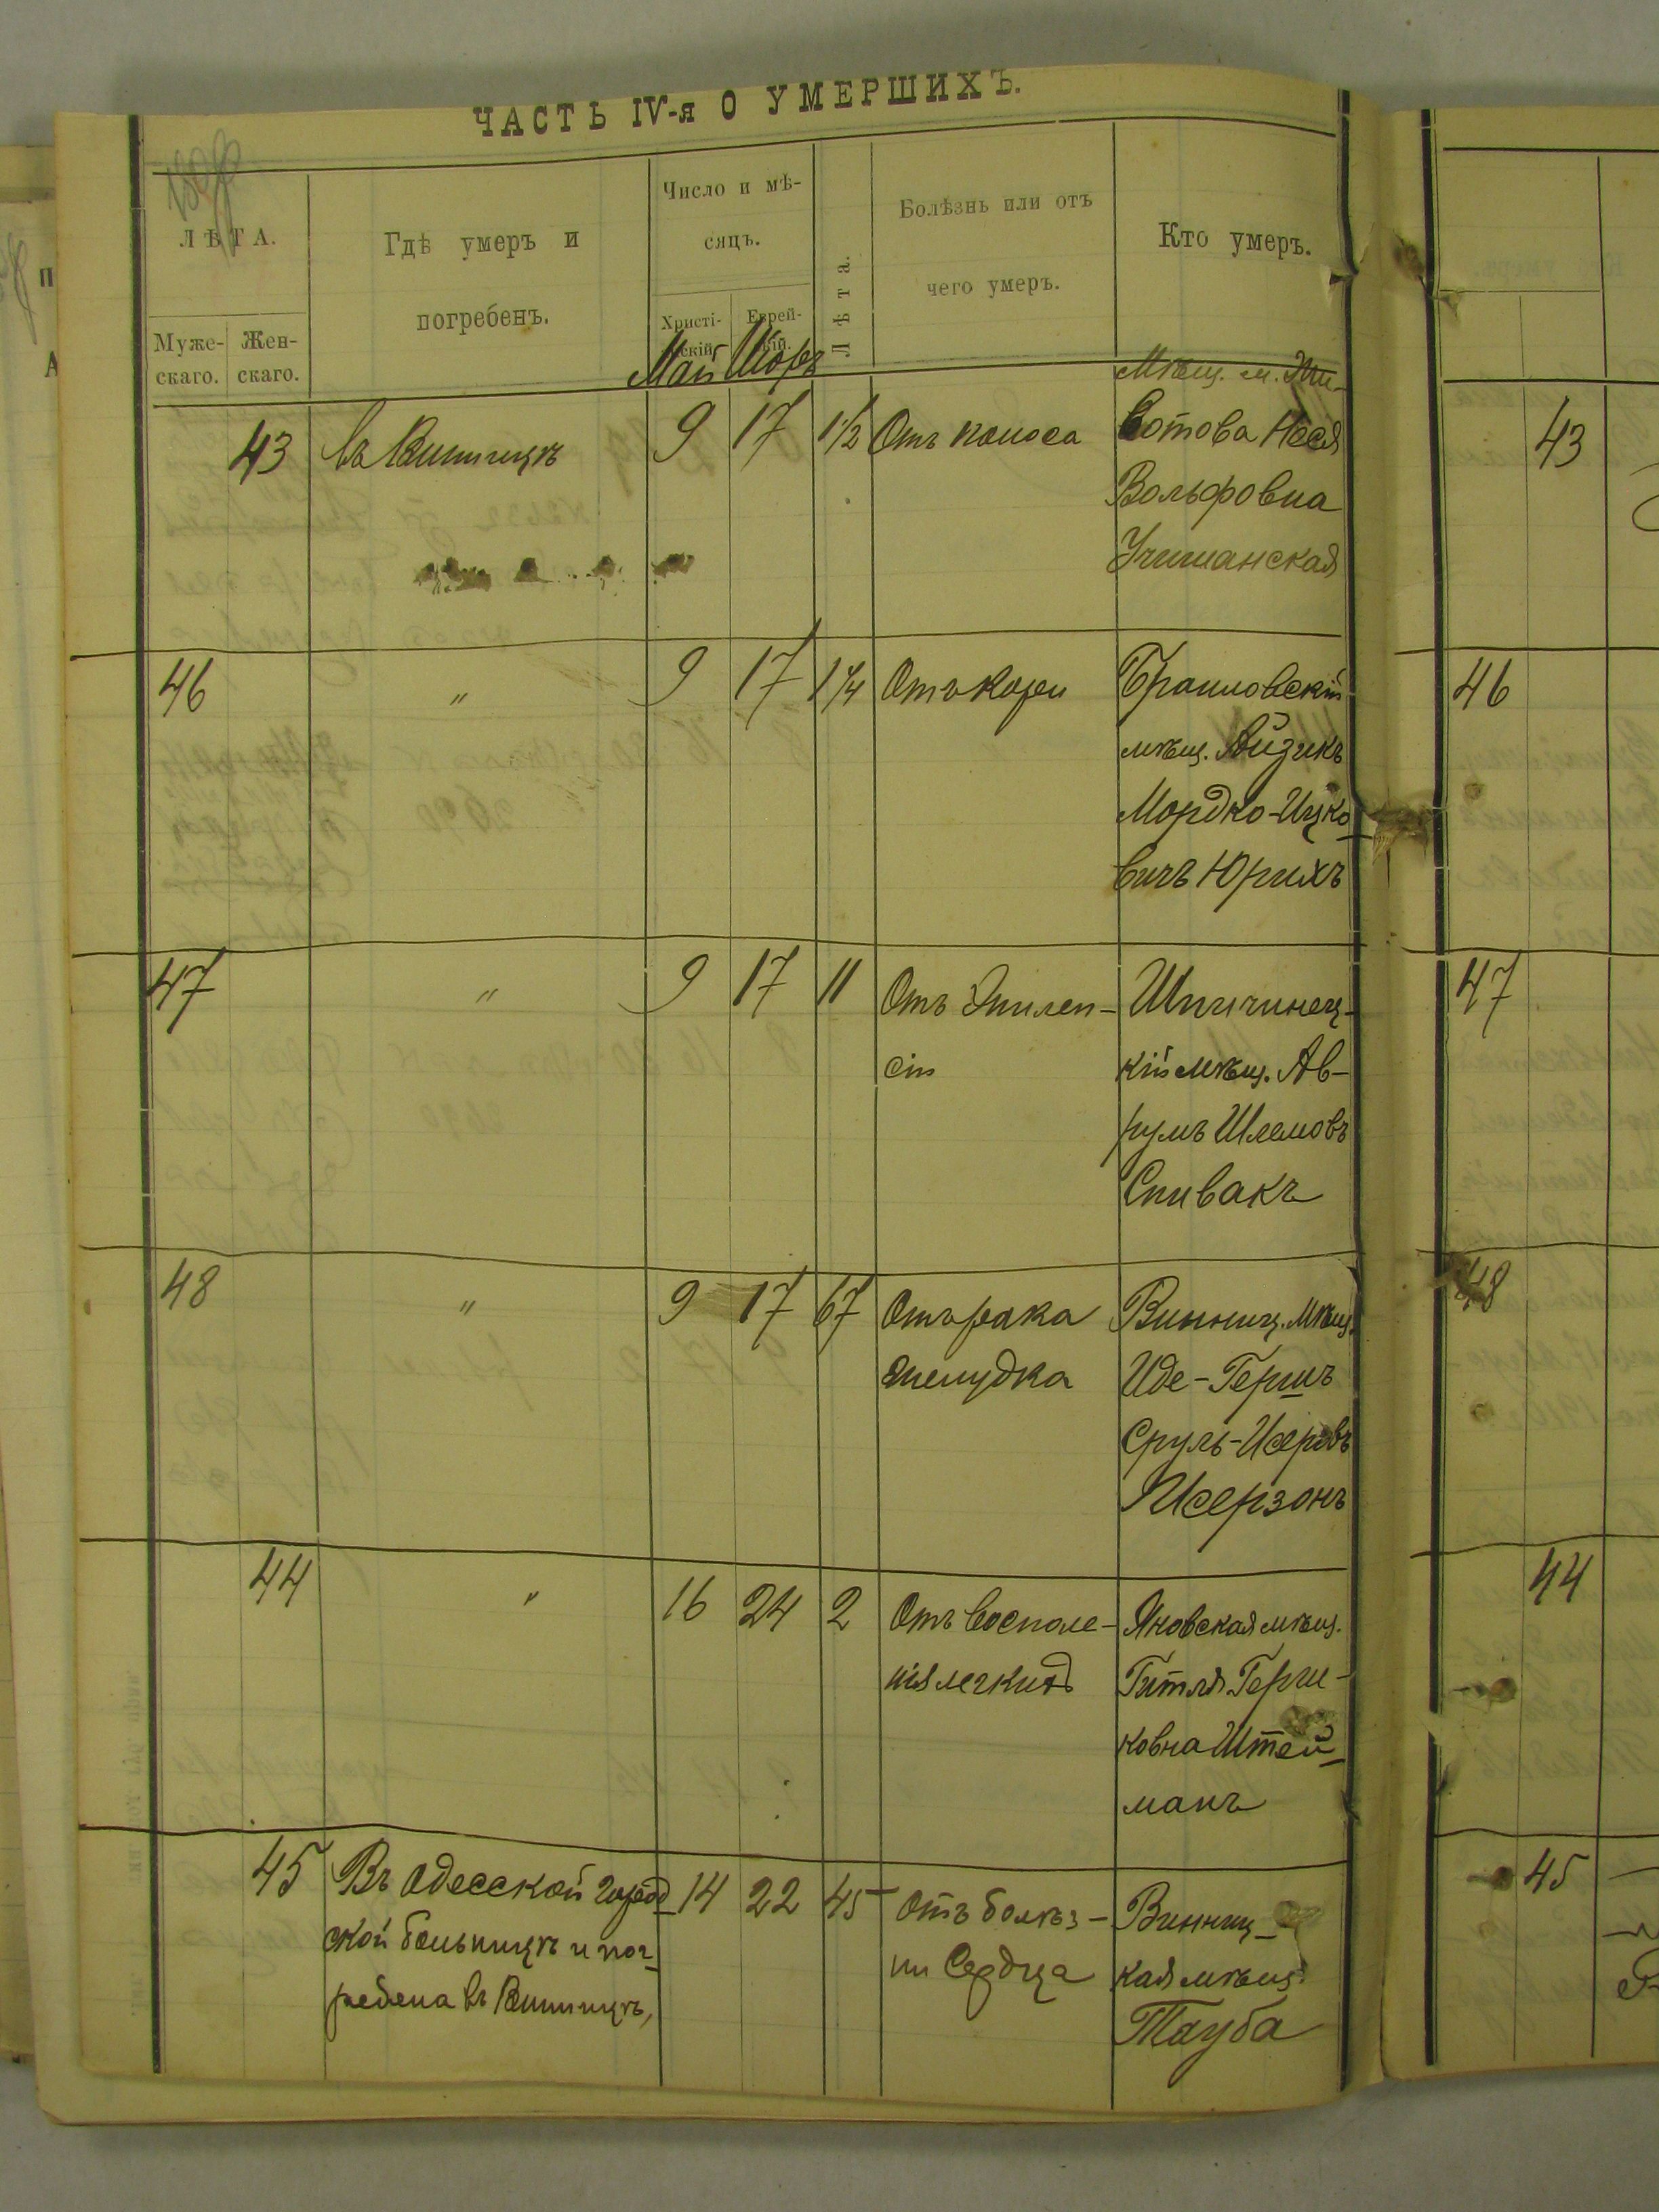 ЧАСТЬ IV-я О УМЕРШИХЪ.
ЛѢТА.
Муже-
скаго.
Жен-
скаго.
Гдѣ умеръ и
погребенъ.
Число и мѣ-
сяцъ.
Христі-
скій
Еврей-
кій.
Лѣта.
Болѣзнь или отъ
чего умеръ.
Кто умеръ.
Май Іюръ
43
въ Винницѣ
9 17 1½
Отъ поноса
Мѣщ. м. Жи-
вотова Неся
Вольфовна
Учиманская
43
46
"
9 17 1¼
Отъ кори
Браиловскій
мѣщ. Айзикъ
Мордко-Ицко
вичъ Юрихъ
46
47
"
9 17 11
Отъ Эпилеп-
сіи
Шпичинец-
кій мѣщ. Ав-
румъ Шлемовъ
Спивакъ
47
48
"
9 17 67
Отъ рака
желудка
Винниц. мѣщ.
Иде-Гершъ
Сруль-Исеровъ
Исерзонъ
48
44
"
16 24 2
Отъ воспале-
нія легкихъ
Яновская мѣщ.
Гитля Герш-
ковна Штей-
манъ
44
45
Въ Одесской город
ской больницѣ и пог
ребена въ Винницѣ,
14 22 45
Отъ болѣз-
ни Сердца
Винниц-
кая мѣщ.
Тауба
45